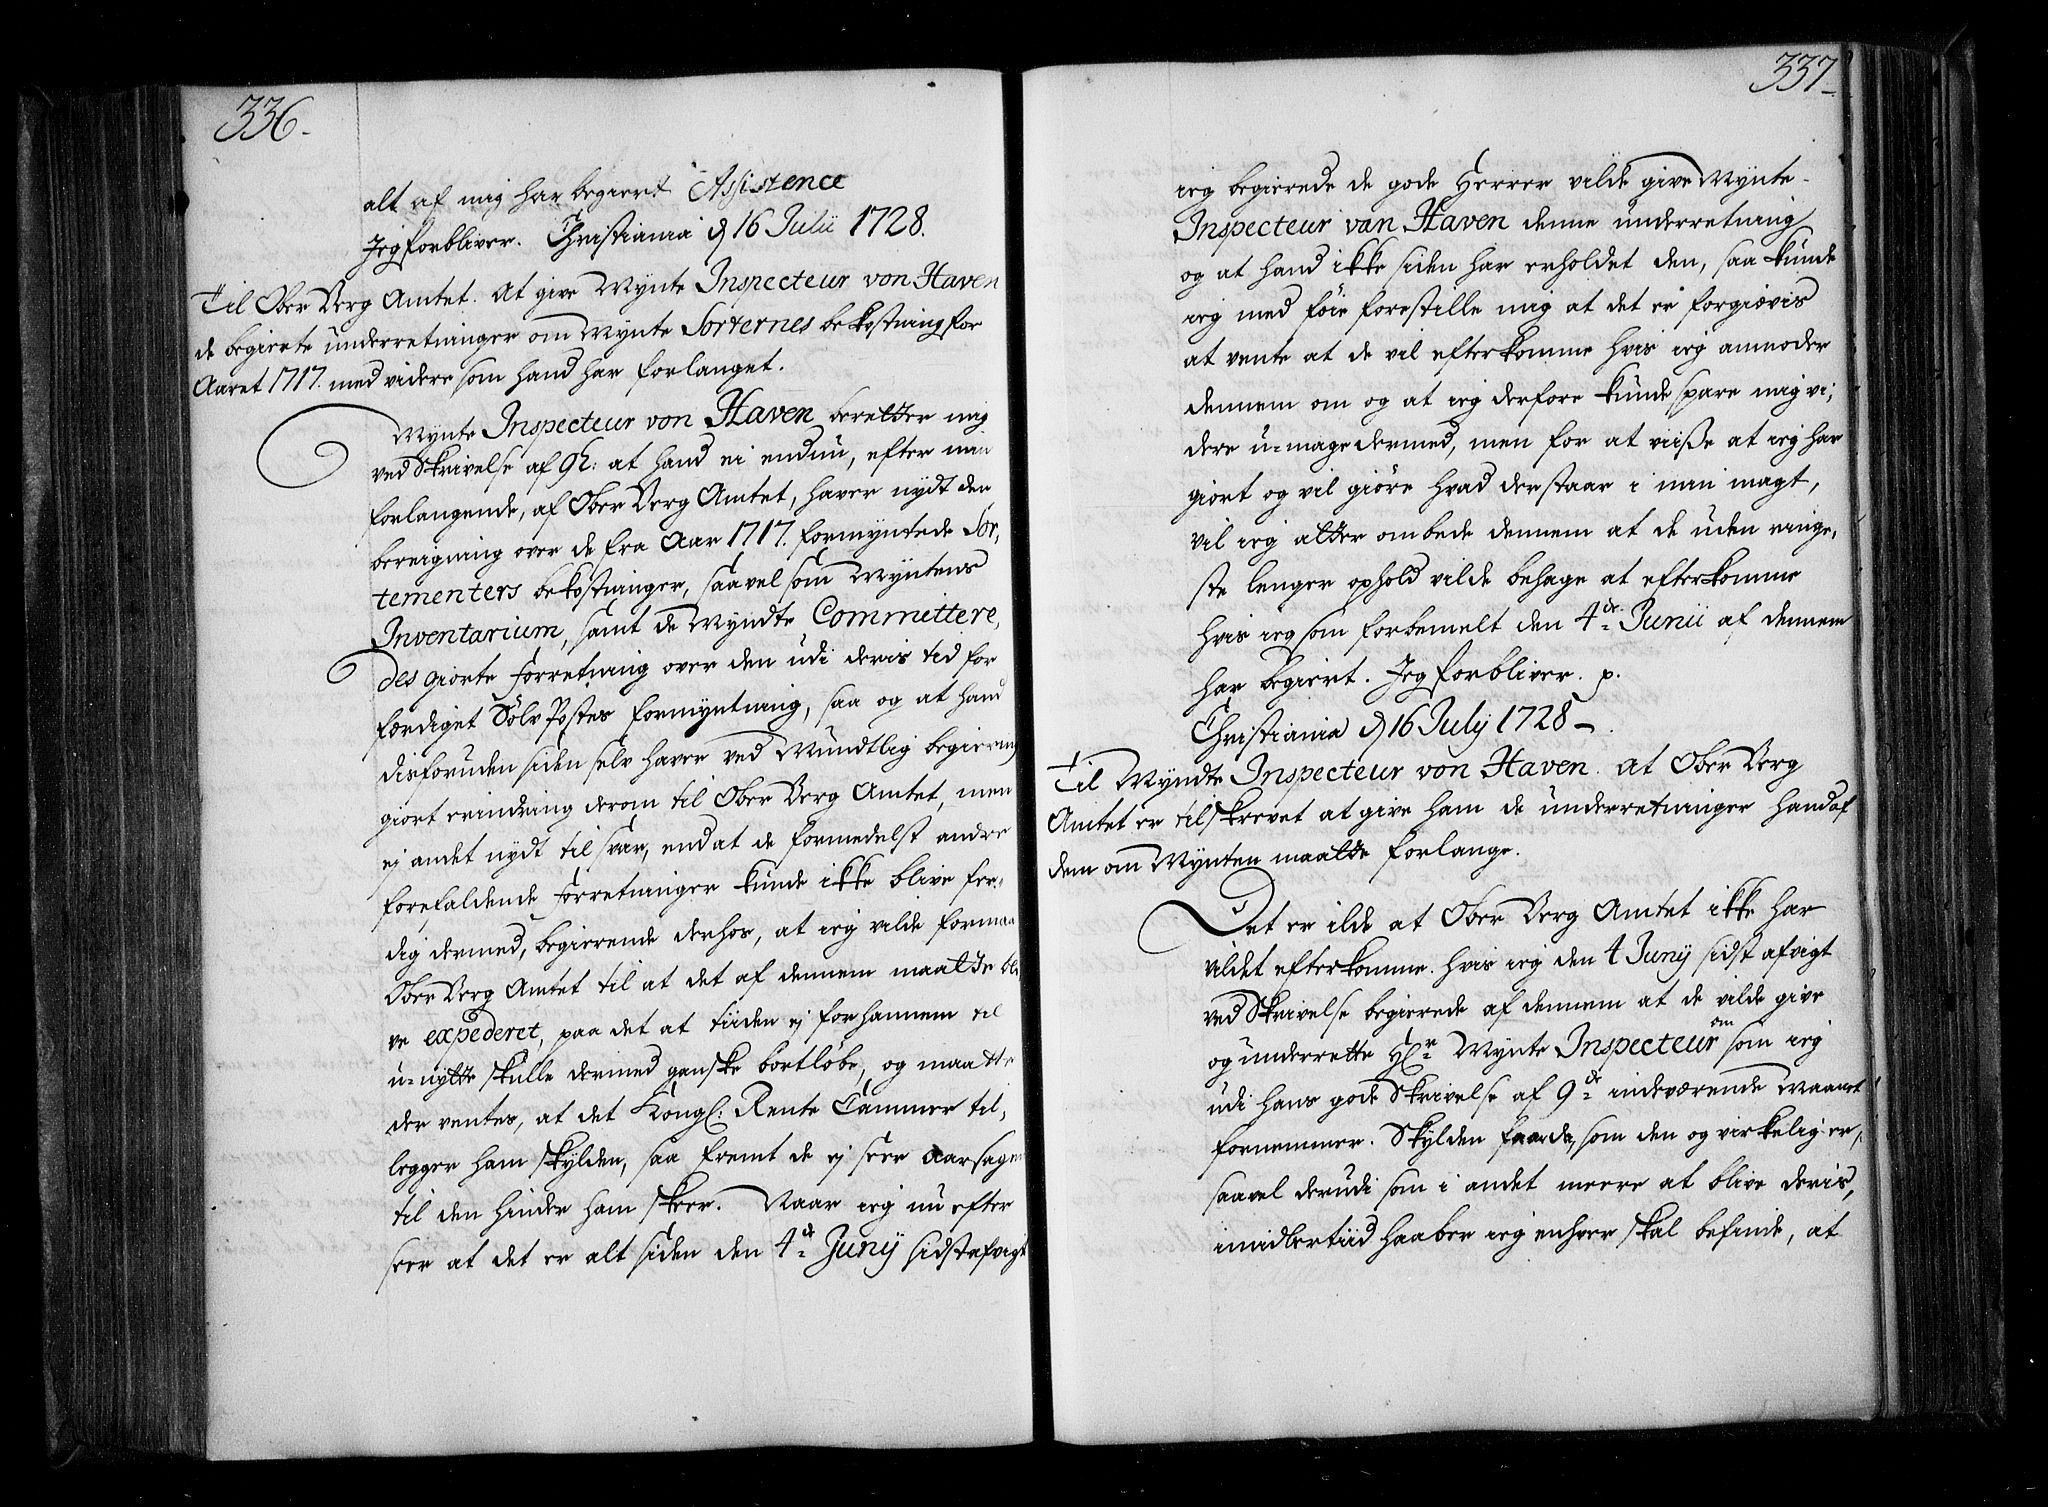 336.
alt af mig har begiert Assistence
Jeg forbliver. Christiania d 16 Julii 1728.
Til Ober Berg Amtet. At give Mynte Inspecteur von Haven
de begierte underretninger om Mynte Sorternes bekostning for
Aaret 1717. med videre som hand har forlanget.
Mynte Inspecteur von Haven beretter mig
ved Skrivelse af 9de: at hand ei endnu, efter min
forlangende, af Ober Berg Amtet, haver nydt den
bereigning over de fra Aar 1717. formyntede Sor,
tementers bekostninger, saavel som Myntens
Inventarium, samt de Myndte Committere,
des giorte Forretning over den udi deris tid for
færdiget Sølv Postes formyntning, saa og at hand
disforuden siden selv haver ved Mundtlig begiering
giort erindring derom til Ober Berg Amtet, men
ej andet nydt til svar, end at de formedelst andre
forefaldende Forretninger kunde ikke blive fer,
dig dermed, begierende derhos, at ieg vilde formaa
Ober Berg Amtet til at det af dennem maatte bli
ve expederet, paa det at tiiden ej for hannem til
u-nytte skulle dermed ganske bortløbe, og maatte
der ventes, at det Kongl: Rente Cammer til,
legger ham skylden, saa fremt de ej seer Aarsagen
til den hinder ham skeer. Naar ieg nu efter
seer at det er alt siden den 4de Junij sidstafvigt
337
ieg begierede de gode Herrer vilde give Mynte-
Inspecteur von Haven denne underretning
og at hand ikke siden har erholdet den, saa kunde
ieg med føie forestille mig at det er forgiævis
at vente at de vil efterkomme hvis ieg anmoder
dennem om og at ieg derfore kunde spare mig vi,
dere u-mage dermed, men for at viise at ieg har
giort og vil giøre hvad der staar i min magt,
vil ieg atter ombede dennem at de uden ringe,
ste lenger ophold vilde behage at efterkomme
hvis ieg som forbemelt den 4de Junii af dennem
har begiert. Jeg forbliver. p.
Christiania d 16 July 1728
Til Myndte Inspecteur von Haven. At Ober Berg
Amtet er tilskrevet at give ham de underretninger hand af
dem om Mynten maatte forlange.
Det er ilde at Ober Berg Amtet ikke har
vildet efterkomme. hvis ieg den 4 Junij sidst afvigt
ved Skrivelse begierede af dennem at de vilde give
og underrette Hr Mynte Inspecteur om som ieg
udi hans gode Skrivelse af 9de indeværende Maanet
fornemmer. Skylden som den og virkelig er,
saavel derudi som i andet meere at blive deris,
imidlertiid haaber ieg enhver skal befinde, at